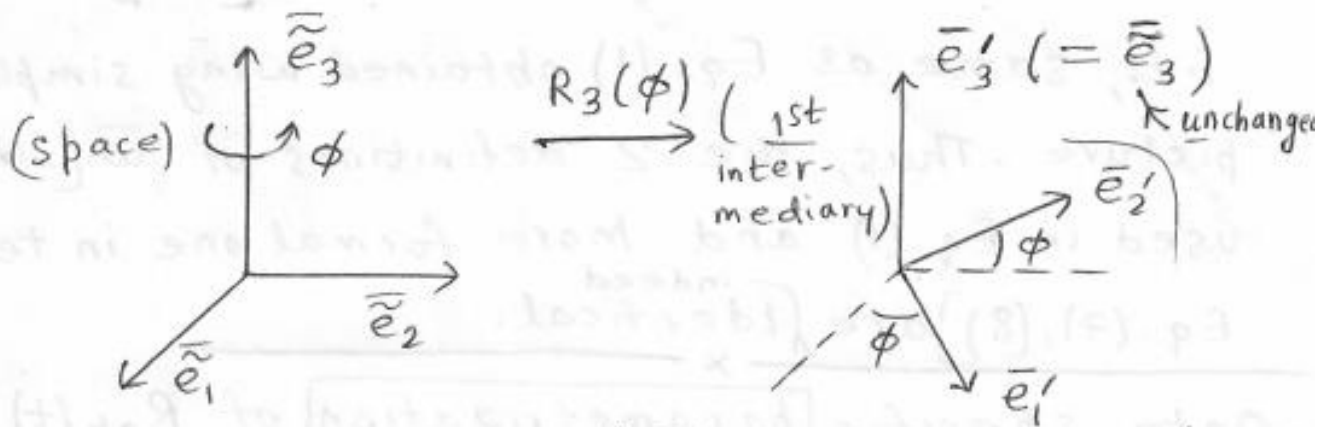 ẽ̅₃
(space) ϕ
ẽ̅₂
ẽ̅₁
R₃(ϕ)
(1st
inter-
mediary)
e̅₃′ (= ẽ̅₃)
unchanged
e̅₂′
ϕ
ϕ
e̅₁′